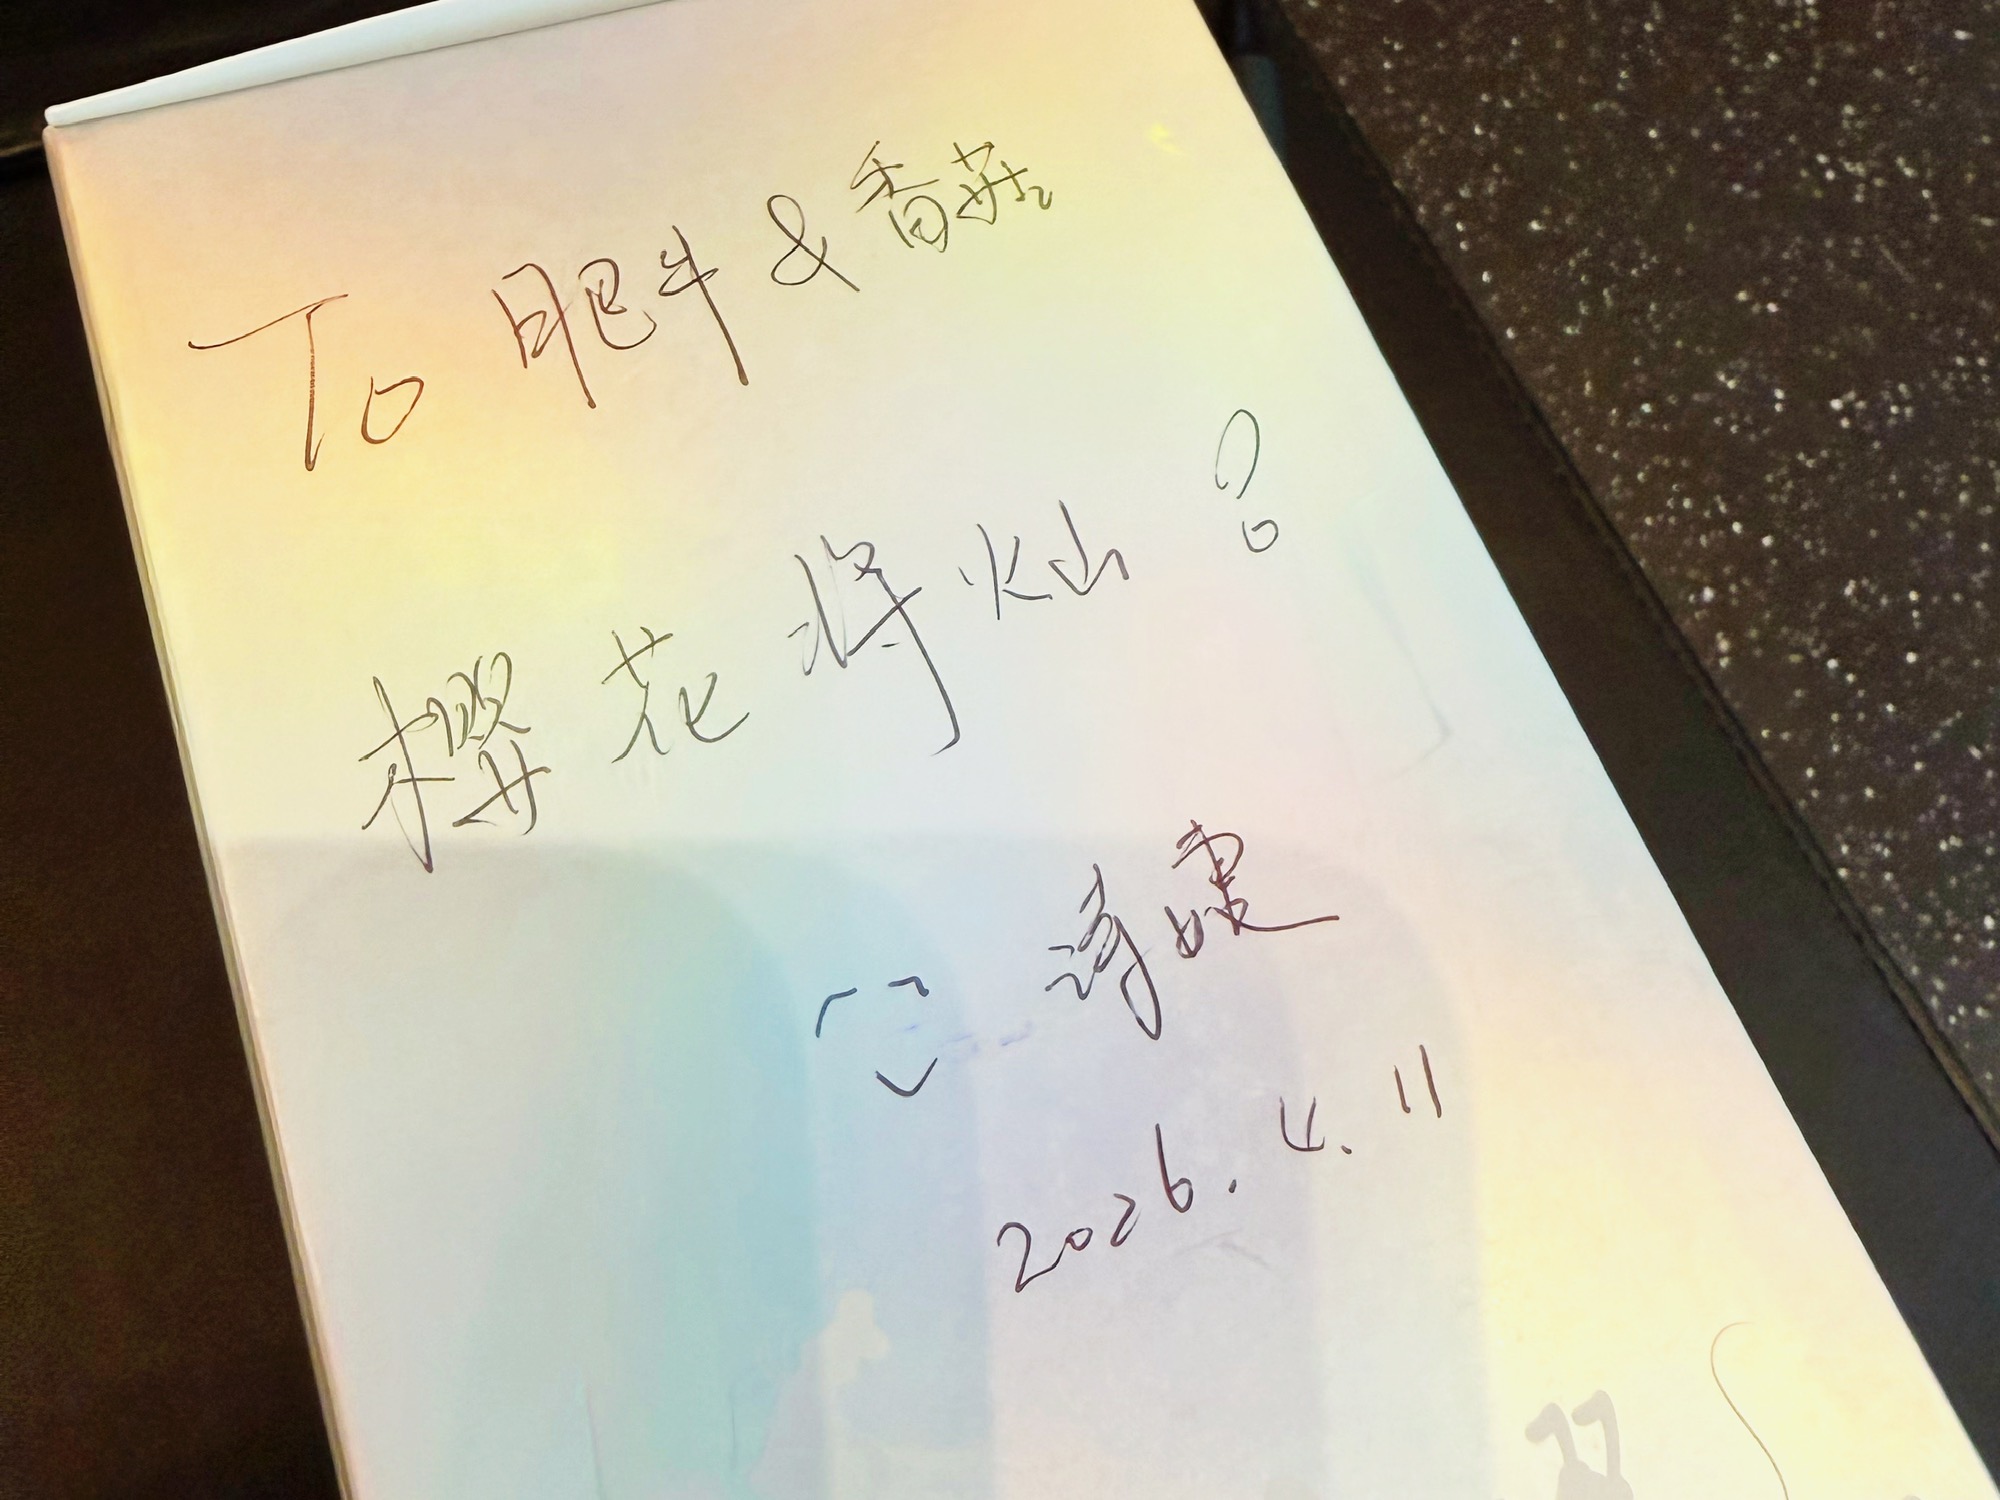 To 肥牛 & 香菇
樱花将灿?
2026.4.11